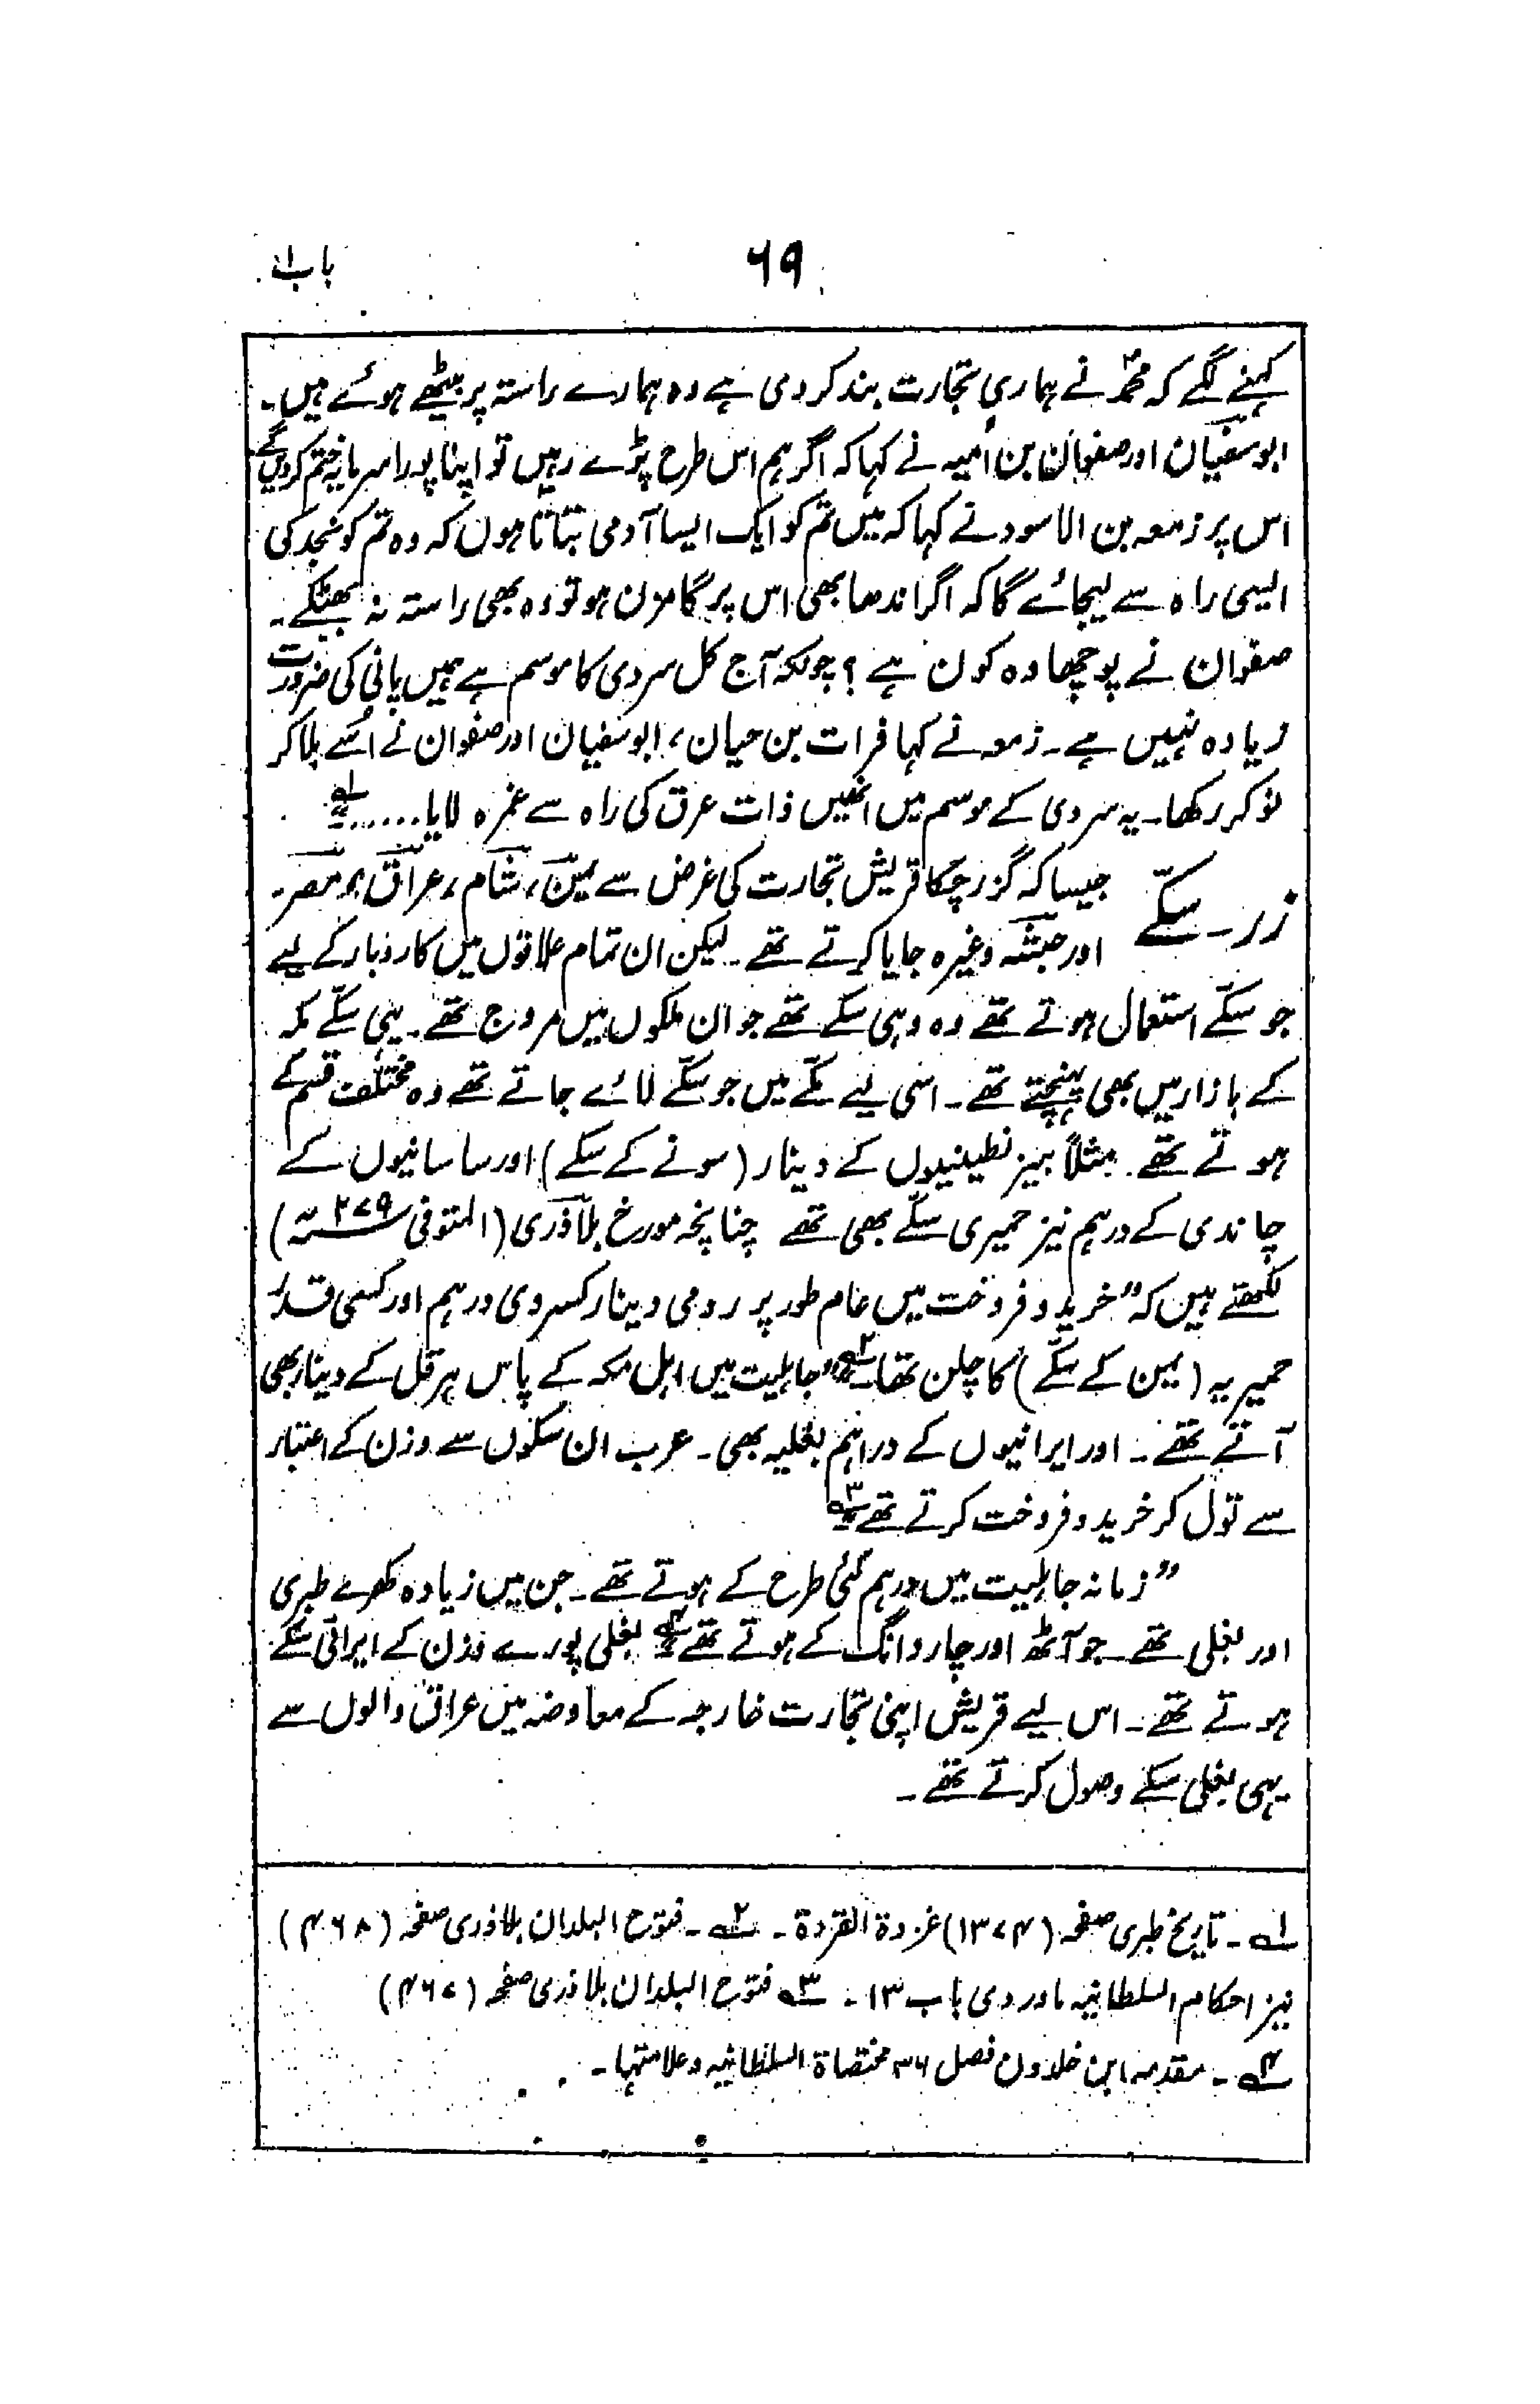 ۶۹
باب۱
کہنے لگے کہ محمدؐ نے ہماری تجارت بند کر دی ہے وہ ہمارے راستہ پر بیٹھے ہوئے ہیں۔
ابو سفیان اور صفوان بن امیہ نے کہا کہ اگر ہم اس طرح پڑے رہیں تو اپنا پورا سرمایہ ختم کردیں گے
اس پر زمعہ بن الاسود نے کہا کہ میں تم کو ایک ایسا آدمی بتاتا ہوں کہ وہ تم کو نجد کی
ایسی راہ سے لیجائے گا کہ اگر اندھا بھی اس پر گامزن ہو تو وہ بھی راستہ نہ بھٹکے۔
صفوان نے پوچھا وہ کون ہے ؟ چونکہ آج کل سردی کا موسم ہے ہمیں پانی کی ضرورت
زیادہ نہیں ہے۔ زمعہ نے کہا فرات بن حیان، ابو سفیان اور صفوان نے اُسے بلا کر
نوکر رکھا۔ یہ سردی کے موسم میں انھیں ذات عرق کی راہ سے غمرہ لایا......۱ے
زر۔ سکّے جیسا کہ گزر چکا قریش تجارت کی غرض سے یمن، شام، عراق، مصر۔
اور حبشہ وغیرہ جایا کرتے تھے۔ لیکن ان تمام علاقوں میں کاروبار کے لیے
جو سکّے استعمال ہوتے تھے وہ وہی سکے تھے جو ان ملکوں میں مروج تھے۔ یہی سکّے مکہ
کے بازار میں بھی پہنچتے تھے۔ اسی لیے مکّے میں جو سکّے لائے جاتے تھے وہ مختلف قسم کے
ہوتے تھے۔ مثلاً بیزنطینیوں کے دینار (سونے کے سکے) اور ساسانیوں کے
چاندی کے درہم نیز حمیری سکّے بھی تھے چنانچہ مورخ بلاذری (المتوفی ۲۷۹ھ)
لکھتے ہیں کہ ”خرید و فروخت میں عام طور پر رومی دینار کسروی درہم اور کسی قدر
حمیریہ (یمن کے سکّے) کا چلن تھا۲ے“ جاہلیت میں اہل مکہ کے پاس ہرقل کے دینار بھی
آتے تھے۔ اور ایرانیوں کے دراہم بغلیہ بھی۔ عرب ان سکوں سے وزن کے اعتبار
سے تول کر خرید و فروخت کرتے تھے۳ے
”زمانہ جاہلیت میں درہم کئی طرح کے ہوتے تھے۔ جن میں زیادہ کھرے طبری
اور بغلی تھے۔ جو آٹھ اور چار دانگ کے ہوتے تھے۴ے بغلی پورے وزن کے ایرانی سکّے
ہوتے تھے۔ اس لیے قریش اپنی تجارت خارجہ کے معاوضہ میں عراق والوں سے
یہی بغلی سکّے وصول کرتے تھے۔
۱ے۔ تاریخ طبری صفحہ (۱۳۷۴) غزوة القردة۔ ۲ے۔ فتوح البلدان بلاذری صفحہ (۴۶۸)
نیز احکام السلطانیہ ماوردی باب ۱۳۔ ۳ے فتوح البلدان بلاذری صفحہ (۴۶۷)
۴ے۔ مقدمہ ابن خلدون فصل ۳۶ مختصاة السلطانیہ وعلامتہا۔